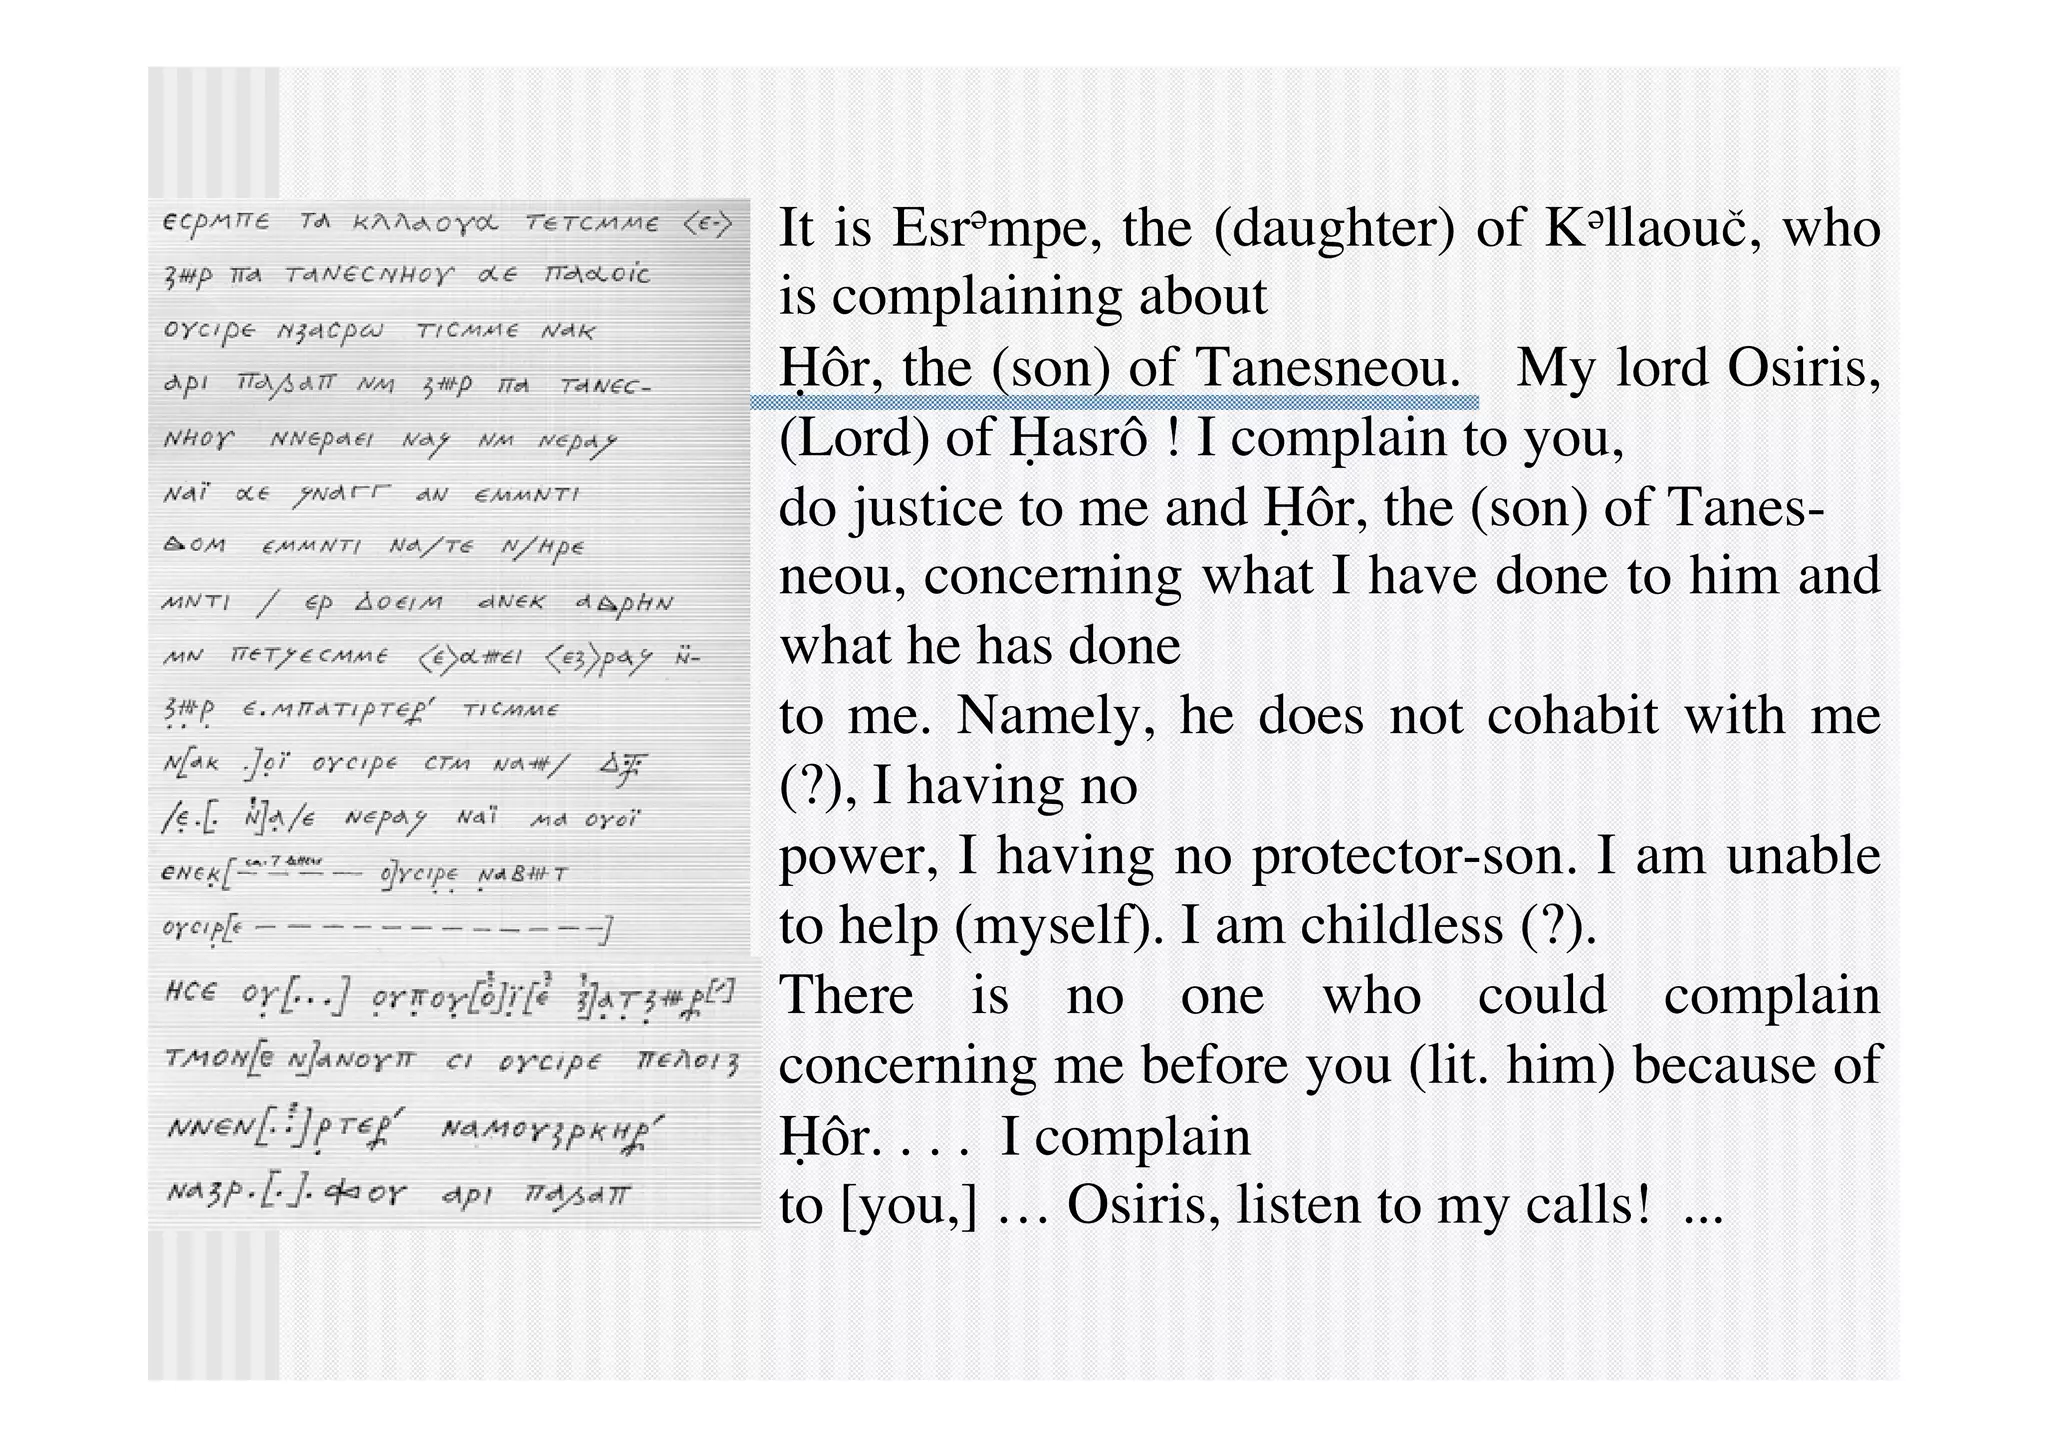 ⲉⲥⲣⲙⲡⲉ ⲧⲁ ⲕⲗⲗⲁⲟⲩⲁ ⲧⲉⲧⲥⲙⲙⲉ ⟨ⲉ-⟩
ⲡⲁ ⲧⲁⲛⲉⲥⲛⲏⲟⲩ ⲁⲉ ⲡⲁⲁⲟⲓⲥ
ⲟⲩⲥⲓⲣⲉ ⲛⳅⲁⲥⲣⲱ ⲧⲓⲥⲙⲙⲉ ⲛⲁⲕ
ⲁⲣⲓ ⲛⲙ ⲡⲁ ⲧⲁⲛⲉⲥ-
ⲛⲏⲟⲩ ⲛⲛⲉⲣⲁⲉⲓ ⲛⲁϥ ⲛⲙ ⲛⲉⲣⲁϥ
ⲛⲁⲓ̈ ⲁⲉ ϥⲛⲁⲅⲅ ⲁⲛ ⲉⲙⲙⲛⲧⲓ
ⲉⲙⲙⲛⲧⲓ ⲛⲁ/ⲧⲉ ⲛ/ⲏⲣⲉ
ⲙⲛⲧⲓ / ⲉⲣ ⲁⲛⲉⲕ
ⲙⲛ ⲡⲉⲧϥⲉⲥⲙⲙⲉ
ⲧⲓⲥⲙⲙⲉ
ⲛ[ⲁⲕ .]ⲟⲓ̈ ⲟⲩⲥⲓⲣⲉ ⲥⲧⲙ
ⲛⲉⲣⲁϥ ⲛⲁⲓ̈ ⲙⲁ ⲟⲩⲟⲓ̈
ⲉⲛⲉⲕ[ ⲟ]ⲩⲥⲓⲣⲉ
ⲟⲩⲥⲓⲣ[ⲉ — — — — — — — — — — — —]
ⲏⲥⲉ ⲟⲩ[...]
ⲧⲙⲟⲛ[ⲉ ⲛ]ⲁⲛⲟⲩⲡ ⲥⲓ ⲟⲩⲥⲓⲣⲉ ⲡⲉⲗⲟⲓⳅ
ⲁⲣⲓ
It is Esrᵊmpe, the (daughter) of Kᵊllaouč, who
is complaining about
Ḥôr, the (son) of Tanesneou. My lord Osiris,
(Lord) of Ḥasrô ! I complain to you,
do justice to me and Ḥôr, the (son) of Tanes-
neou, concerning what I have done to him and
what he has done
to me. Namely, he does not cohabit with me
(?), I having no
power, I having no protector-son. I am unable
to help (myself). I am childless (?).
There is no one who could complain
concerning me before you (lit. him) because of
Ḥôr. . . . I complain
to [you,] … Osiris, listen to my calls! ...